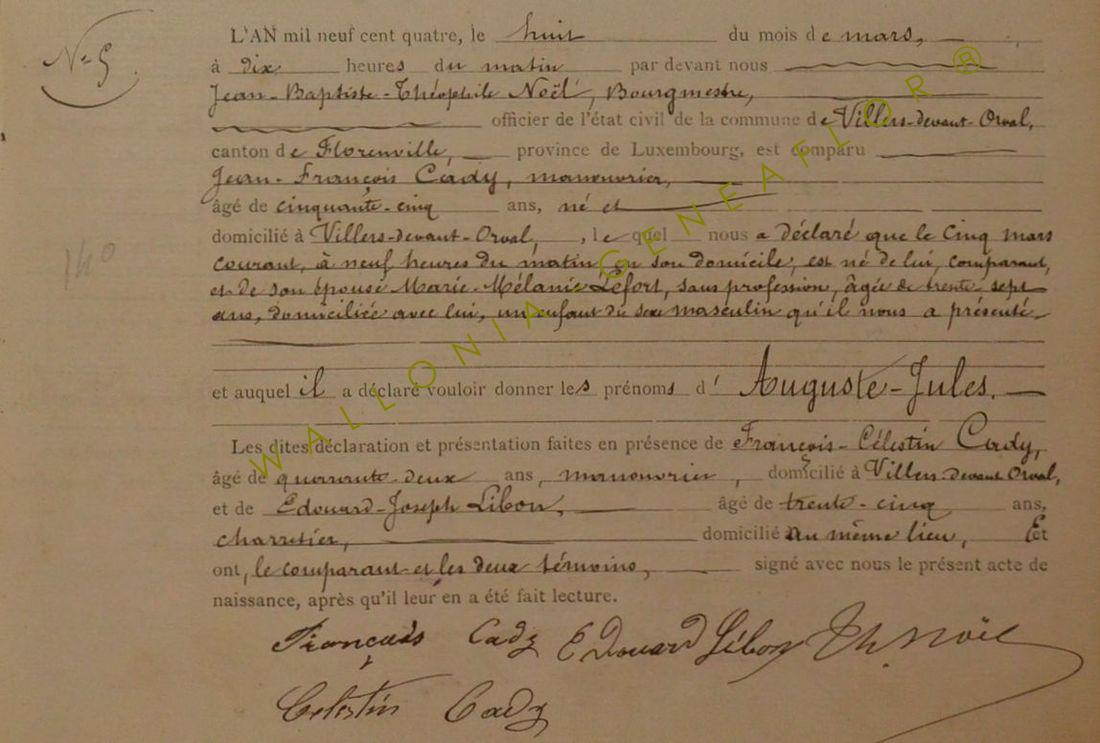 L'AN mil neuf cent quatre, le huit du mois de mars,
N° 5
à dix heures du matin par devant nous
Jean-Baptiste-Théophile Noël, Bourgmestre,
officier de l'état civil de la commune de Villers-devant-Orval,
canton de Florenville, province de Luxembourg, est comparu
Jean-François Cady, manouvrier,
âgé de cinquante-cinq ans, né et
domicilié à Villers-devant-Orval, , lequel nous a déclaré que le cinq mars
140
courant, à neuf heures du matin en son domicile, est né de lui, comparant,
et de son épouse Marie-Mélanie Lefort, sans profession, âgée de trente-sept
ans, domiciliée avec lui, un enfant du sexe masculin qu'il nous a présenté
et auquel il a déclaré vouloir donner les prénoms d' Auguste-Jules.
Les dites déclaration et présentation faites en présence de François-Célestin Cady,
âgé de quarante-deux ans, manouvrier, domicilié à Villers-devant-Orval,
et de Edouard-Joseph Libon, âgé de trente-cinq ans,
charretier, domicilié au même lieu, Et
ont, le comparant et les deux témoins, signé avec nous le présent acte de
naissance, après qu'il leur en a été fait lecture.
François Cady Edouard Libon Th. Noël
Celestin Cady
WALLONIA-GENEAFLOR ®